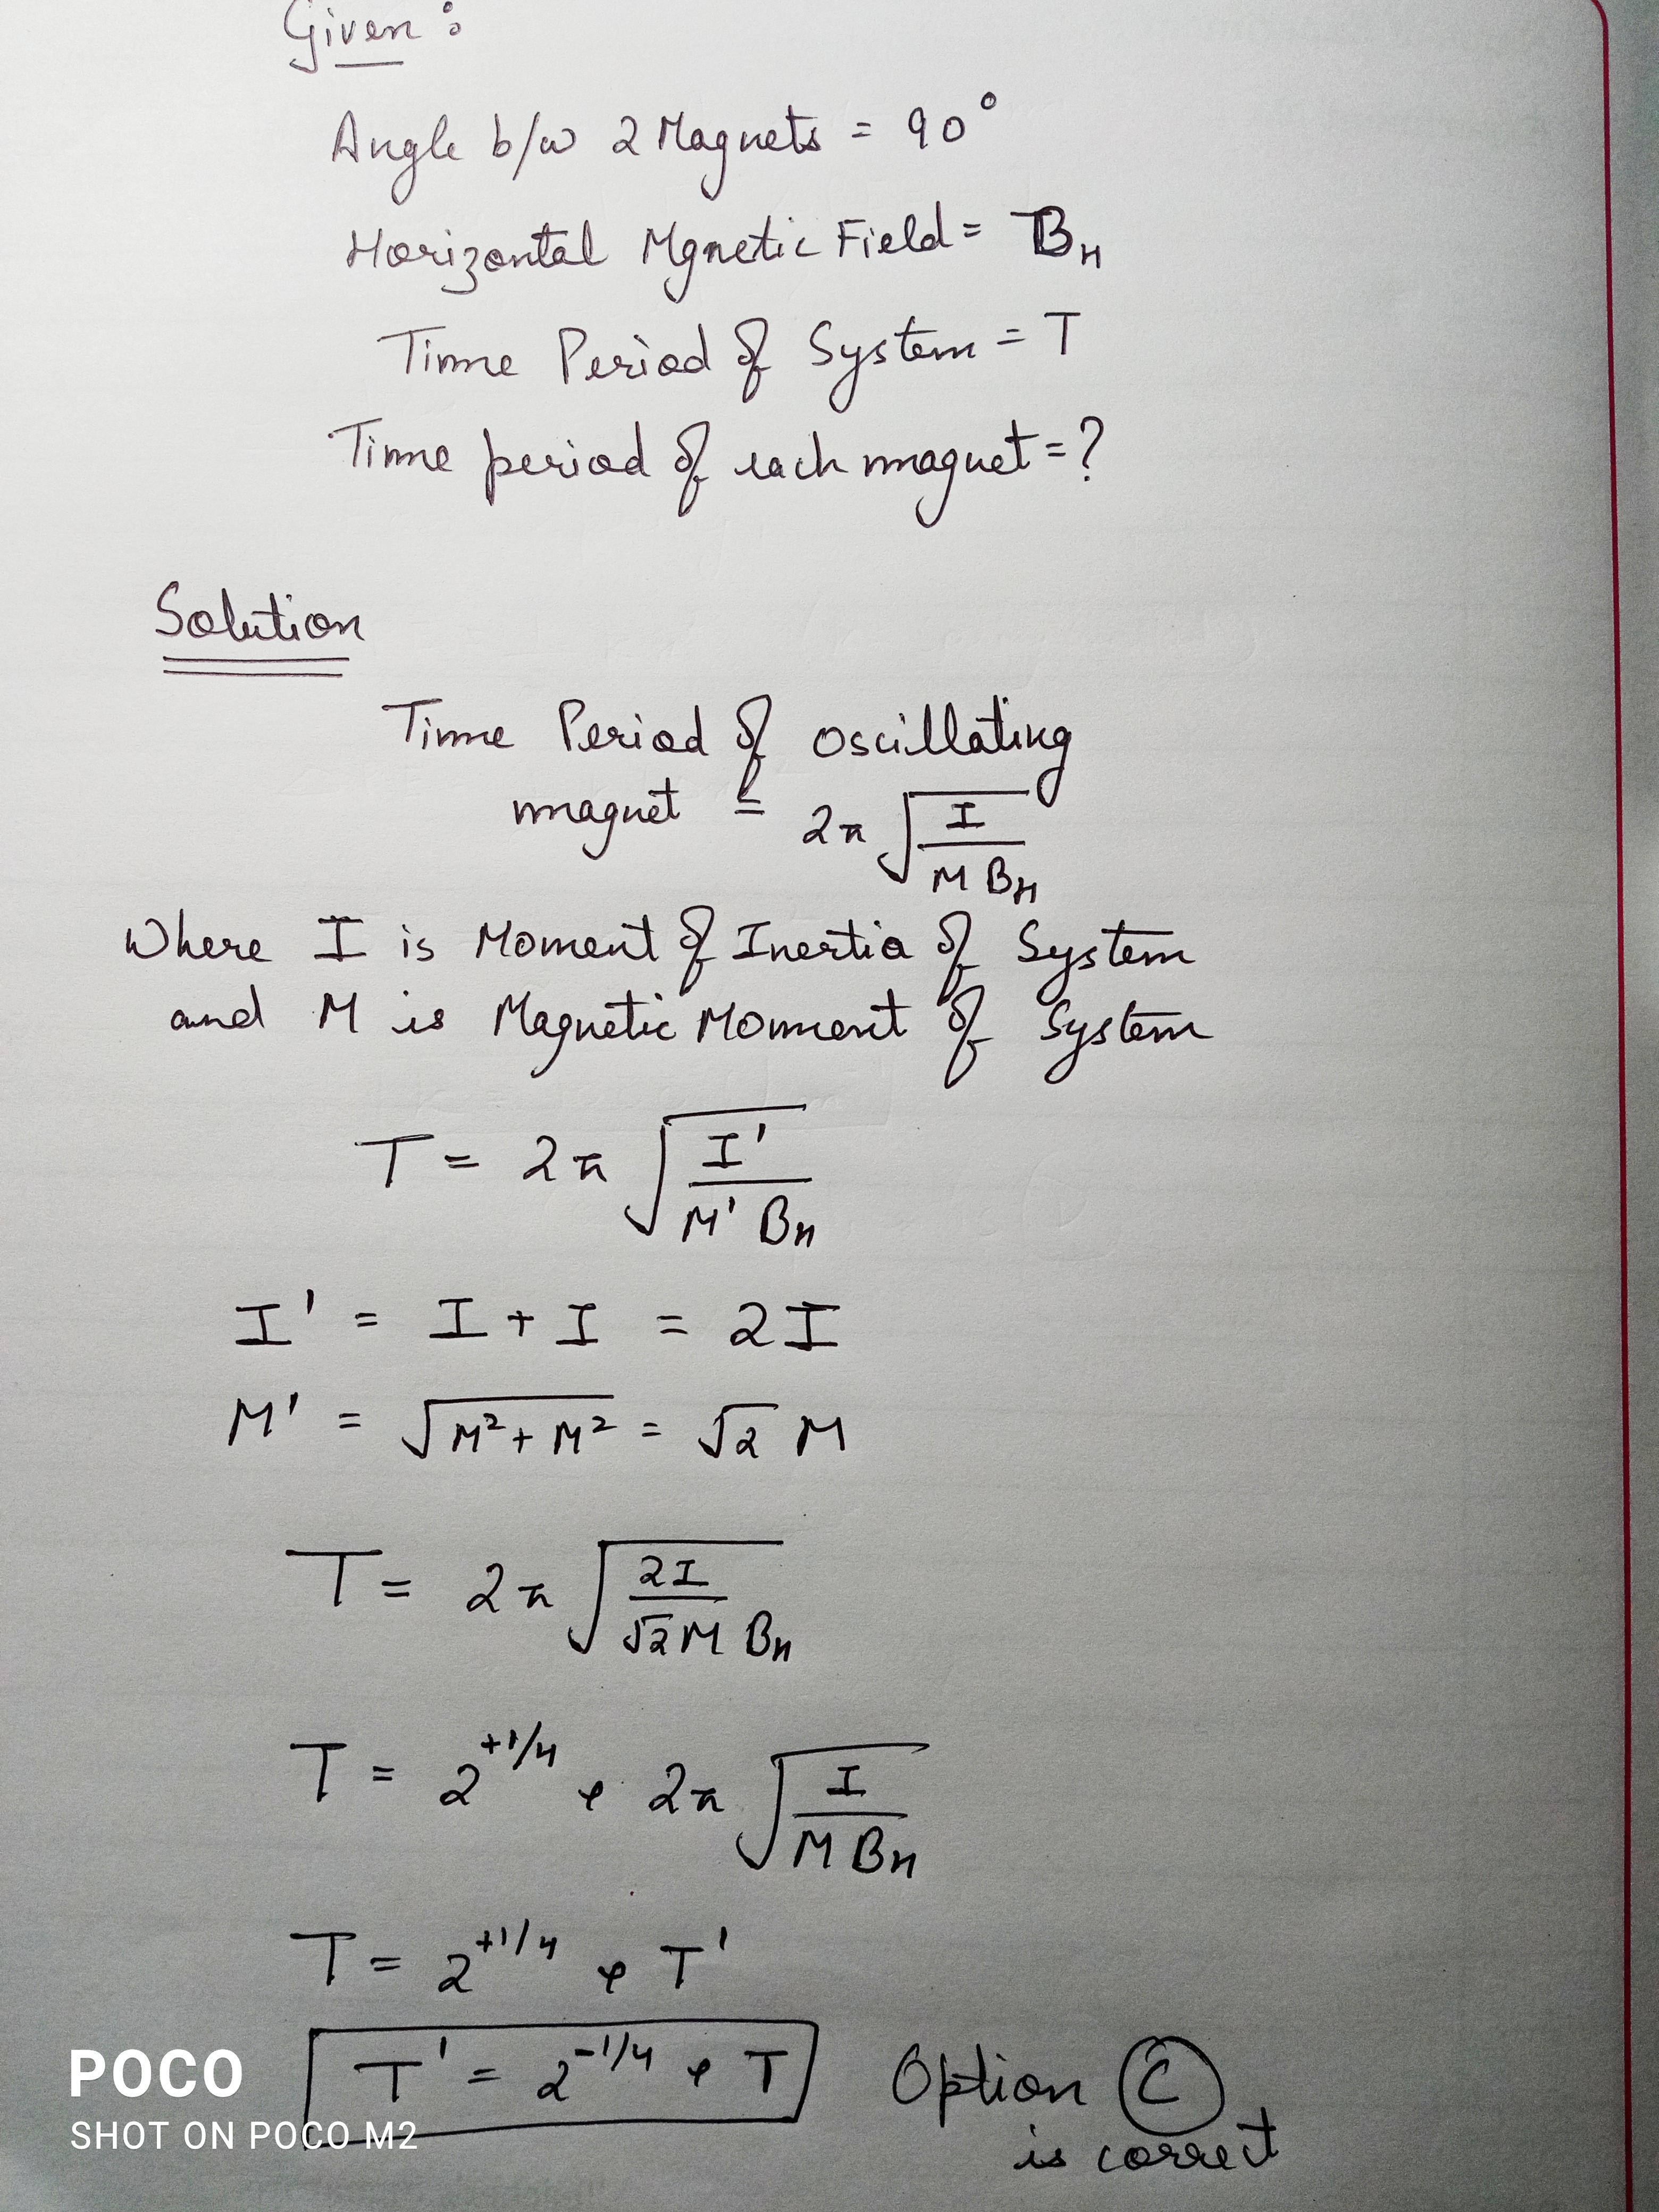 Given :
Angle b/w 2 Magnets = 90°
Horizontal Mgnetic Field = B_H
Time Period of System = T
Time period of each magnet = ?
Solution
Time Period of Oscillating
magnet = 2π √(I / M B_H)
Where I is Moment of Inertia of System
and M is Magnetic Moment of System
T = 2π √(I' / M' B_H)
I' = I + I = 2I
M' = √(M² + M²) = √2 M
T = 2π √(2I / √2 M B_H)
T = 2^(+1/4) * 2π √(I / M B_H)
T = 2^(+1/4) * T'
T' = 2^(-1/4) * T Option C
is correct
POCO
SHOT ON POCO M2